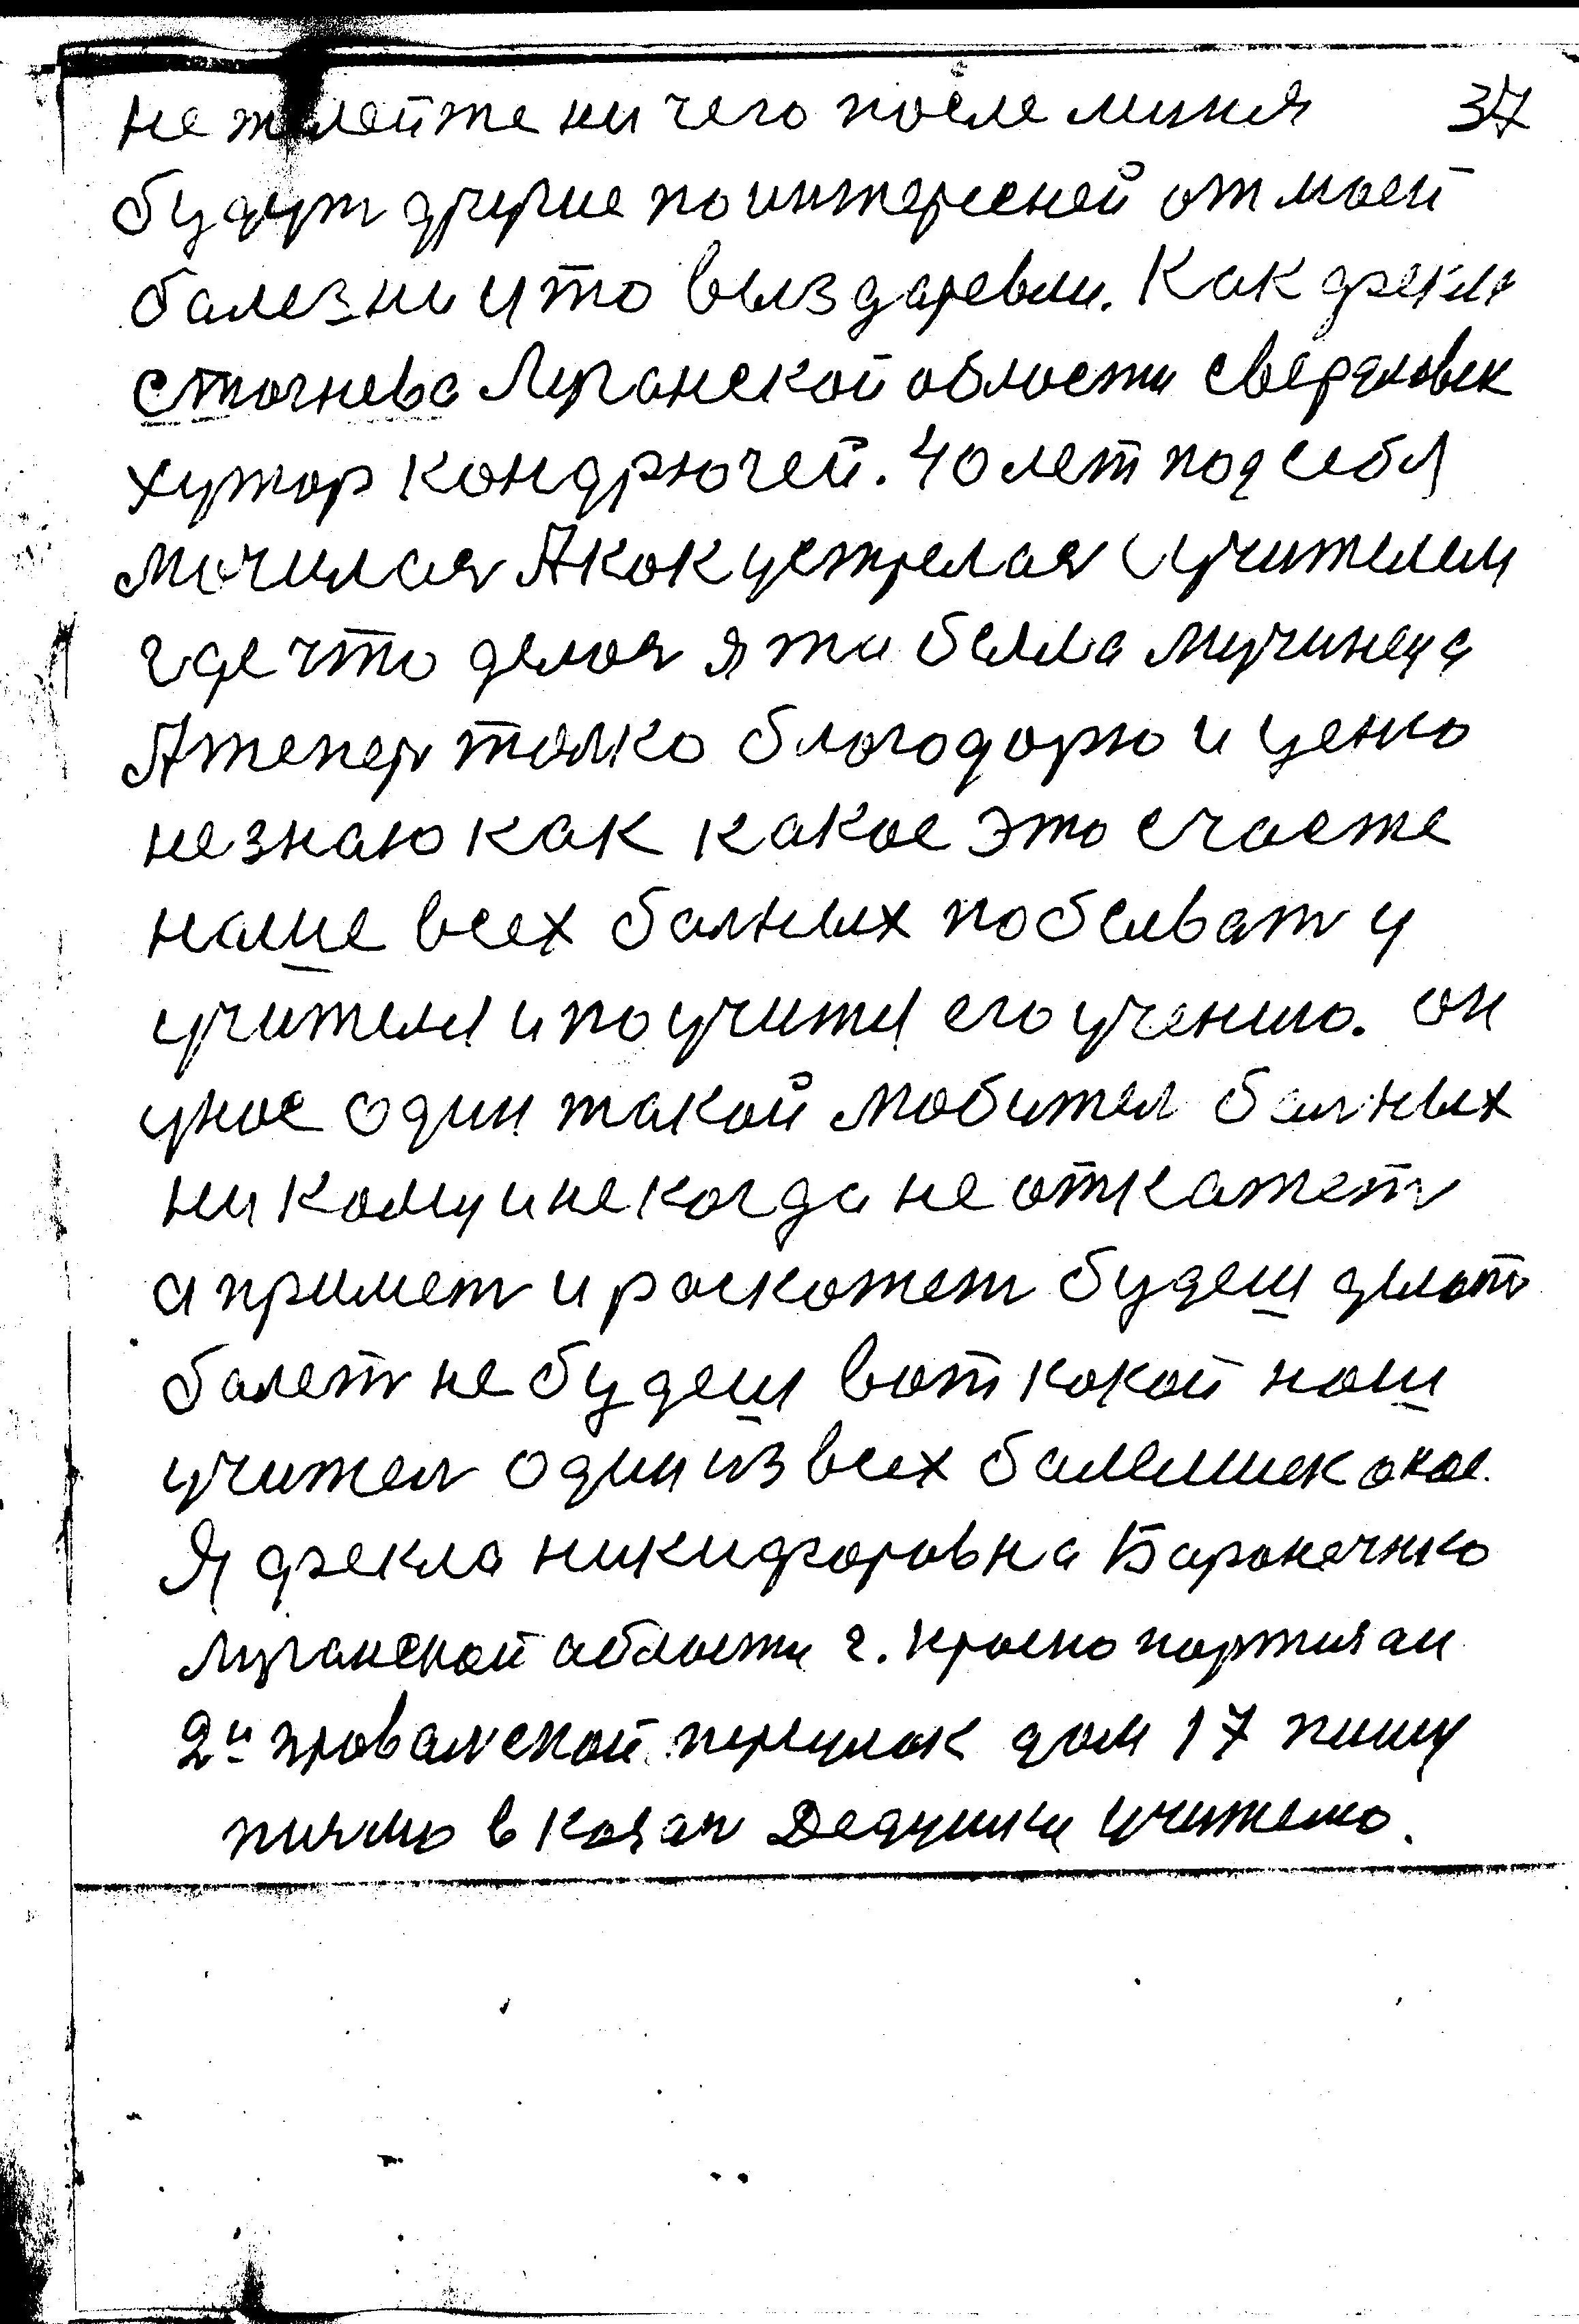 не жалейте ни чего после миня 37
будут другие поинтересней от моей
балезни и то выздаревли. Как фекла
стогнева Луганской области свердловск
хутор кондрючей. 40 лет под себя
мочилася А как устрелася с учителем
где что делося я та была мучиница
А тепер толко благодарю и ценю
незнаю как какое это счасте
наше всех балных побыват у
учителя и поучится его учению. он
унас один такой любител балных
ни кому и некогда не откажет
а примет и раскажет будеш делат
балет не будеш вот какой наш
учител один из всех
Я фекла никифоровна
Луганской области г. краснопартизан
2й провалской переулок дом 17 пишу
писмо в Дедушки учителю.